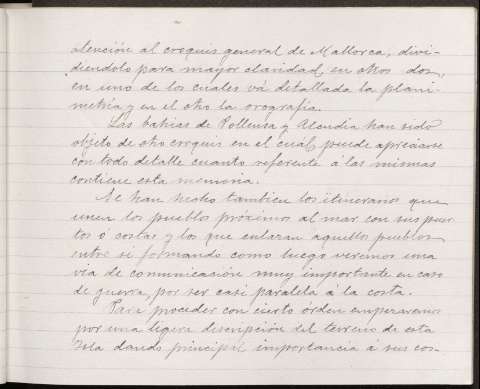 atención al croquis general de Mallorca, divi-
diendolo para mayor claridad, en otros dos,
en uno de los cuales vá detallada la plani-
metria y en el otro la orografía.
Las bahias de Pollensa y Alcudia han sido
objeto de otro croquis en el cuál puede apreciarse
con todo detalle cuanto referente á las mismas
contiene esta memoria.
Se han hecho tambien los itinerarios que
unen los pueblos próximos al mar con sus puer
tos ó costas y los que enlazan aquellos pueblos
entre si formando como luego veremos una
via de comunicación muy importante en caso
de guerra, por ser casi paralela á la costa.
Para proceder con cierto órden empezaremos
por una ligera descripción del terreno de esta
Isla dando principal importancia á sus cos-